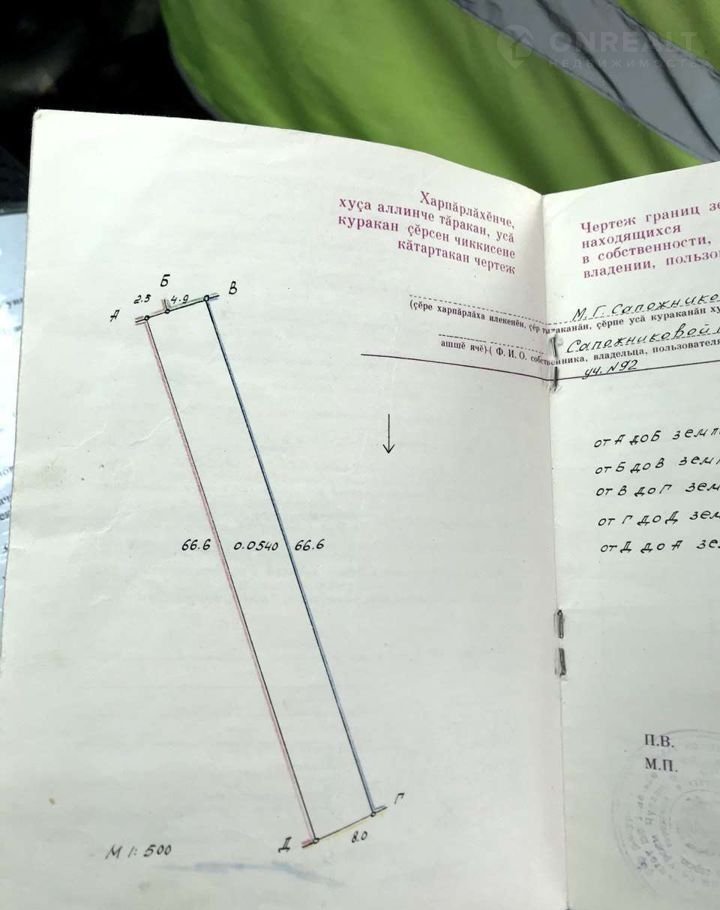 CNREALT
НЕДВИЖИМОСТЬ
Харпăрлăхĕнче,
хуçа аллинче тăракан, усă
куракан çĕрсен чиккисене
кăтартакан чертеж
Чертеж границ
находящихся
в собственности,
владении,
М. Г. Сапожнико
(çĕре харпăрлăха илекенĕн, çĕр тытаканăн, çĕрпе усă кураканăн
Сапожниковой
ашшĕ ячĕ)-( Ф. И. О. собственника, владельца, пользователя
уч. N92
А
2.5
Б
4.9
В
66.6
0.0540
66.6
Г
Д
8.0
М 1: 500
от А до Б
от Б до В
от В до Г
от Г до Д
от Д до А
П.В.
М.П.